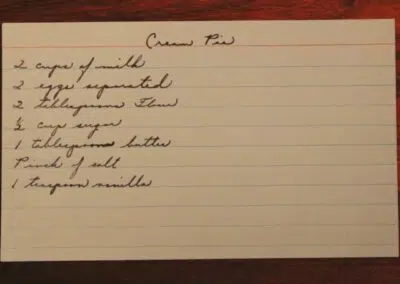 Cream Pie
2 cups of milk
2 eggs separated
2 tablespoons Flour
½ cup sugar
1 tablespoon butter
Pinch of salt
1 teaspoon vanilla